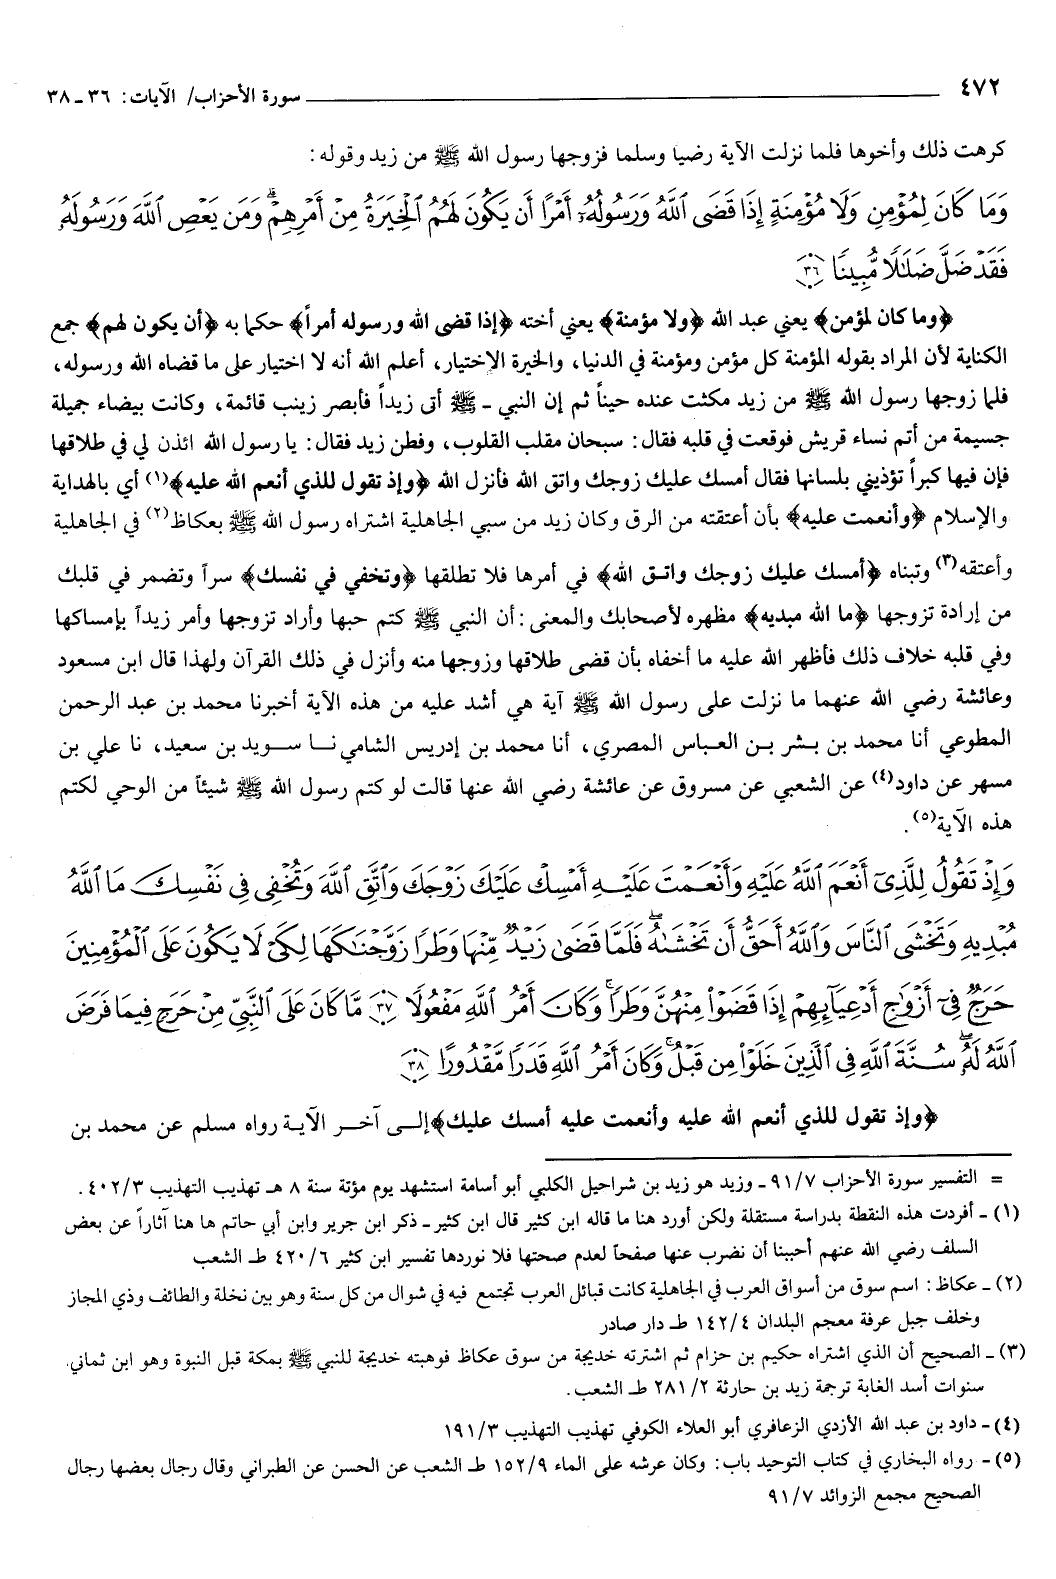 ٤٧٢ سورة الأحزاب/ الآيات: ٣٦ ـ ٣٨
كرهت ذلك وأخوها فلما نزلت الآية رضيا وسلما فزوجها رسول الله ﷺ من زيد وقوله:
وَمَا كَانَ لِمُؤْمِنٍ وَلَا مُؤْمِنَةٍ إِذَا قَضَى ٱللَّهُ وَرَسُولُهُۥٓ أَمْرًا أَن يَكُونَ لَهُمُ ٱلْخِيَرَةُ مِنْ أَمْرِهِمْ ۗ وَمَن يَعْصِ ٱللَّهَ وَرَسُولَهُۥ
فَقَدْ ضَلَّ ضَلَٰلًا مُّبِينًا ٣٦
﴿وما كان لمؤمن﴾ يعني عبد الله ﴿ولا مؤمنة﴾ يعني أخته ﴿إذا قضى الله ورسوله أمراً﴾ حكما به ﴿أن يكون لهم﴾ جمع
الكناية لأن المراد بقوله المؤمنة كل مؤمن ومؤمنة في الدنيا، والخيرة الإختيار، أعلم الله أنه لا اختيار على ما قضاه الله ورسوله،
فلما زوجها رسول الله ﷺ من زيد مكثت عنده حيناً ثم إن النبي ـ ﷺ أتى زيداً فأبصر زينب قائمة، وكانت بيضاء جميلة
جسيمة من أتم نساء قريش فوقعت في قلبه فقال: سبحان مقلب القلوب، وفطن زيد فقال: يا رسول الله ائذن لي في طلاقها
فإن فيها كبراً تؤذيني بلسانها فقال أمسك عليك زوجك واتق الله فأنزل الله ﴿وإذ تقول للذي أنعم الله عليه﴾(١) أي بالهداية
والإسلام ﴿وأنعمت عليه﴾ بأن أعتقته من الرق وكان زيد من سبي الجاهلية اشتراه رسول الله ﷺ بعكاظ(٢) في الجاهلية
وأعتقه(٣) وتبناه ﴿أمسك عليك زوجك واتـق الله﴾ في أمرها فلا تطلقها ﴿وتخفي في نفسك﴾ سراً وتضمر في قلبك
من إرادة تزوجها ﴿ما الله مبديه﴾ مظهره لأصحابك والمعنى: أن النبي ﷺ كتم حبها وأراد تزوجها وأمر زيداً بإمساكها
وفي قلبه خلاف ذلك فأظهر الله عليه ما أخفاه بأن قضى طلاقها وزوجها منه وأنزل في ذلك القرآن ولهذا قال ابن مسعود
وعائشة رضي الله عنهما ما نزلت على رسول الله ﷺ آية هي أشد عليه من هذه الآية أخبرنا محمد بن عبد الرحمن
المطوعي أنا محمد بن بشر بن العباس المصري، أنا محمد بن إدريس الشامي نـا سـويد بن سعيد، نا علي بن
مسهر عن داود(٤) عن الشعبي عن مسروق عن عائشة رضي الله عنها قالت لو كتم رسول الله ﷺ شيئاً من الوحي لكتم
هذه الآية(٥).
وَإِذْ تَقُولُ لِلَّذِىٓ أَنْعَمَ ٱللَّهُ عَلَيْهِ وَأَنْعَمْتَ عَلَيْهِ أَمْسِكْ عَلَيْكَ زَوْجَكَ وَٱتَّقِ ٱللَّهَ وَتُخْفِى فِى نَفْسِكَ مَا ٱللَّهُ
مُبْدِيهِ وَتَخْشَى ٱلنَّاسَ وَٱللَّهُ أَحَقُّ أَن تَخْشَىٰهُ ۖ فَلَمَّا قَضَىٰ زَيْدٌ مِّنْهَا وَطَرًا زَوَّجْنَٰكَهَا لِكَىْ لَا يَكُونَ عَلَى ٱلْمُؤْمِنِينَ
حَرَجٌ فِىٓ أَزْوَٰجِ أَدْعِيَآئِهِمْ إِذَا قَضَوْا۟ مِنْهُنَّ وَطَرًا ۚ وَكَانَ أَمْرُ ٱللَّهِ مَفْعُولًا ٣٧ مَّا كَانَ عَلَى ٱلنَّبِىِّ مِنْ حَرَجٍ فِيمَا فَرَضَ
ٱللَّهُ لَهُۥ ۖ سُنَّةَ ٱللَّهِ فِى ٱلَّذِينَ خَلَوْا۟ مِن قَبْلُ ۚ وَكَانَ أَمْرُ ٱللَّهِ قَدَرًا مَّقْدُورًا ٣٨
﴿وإذ تقول للذي أنعم الله عليه وأنعمت عليه أمسك عليك﴾ إلـى آخـر الآيـة رواه مسلم عن محمد بن
= التفسير سورة الأحزاب ٩١/٧ ـ وزيد هو زيد بن شراحيل الكلبي أبو أسامة استشهد يوم مؤتة سنة ٨ هـ تهذيب التهذيب ٤٠٢/٣.
(١) ـ أفردت هذه النقطة بدراسة مستقلة ولكن أورد هنا ما قاله ابن كثير قال ابن كثير ـ ذكر ابن جرير وابن أبي حاتم ها هنا آثاراً عن بعض
السلف رضي الله عنهم أحببنا أن نضرب عنها صفحاً لعدم صحتها فلا نوردها تفسير ابن كثير ٤٢٠/٦ طـ الشعب
(٢) ـ عكاظ: اسم سوق من أسواق العرب في الجاهلية كانت قبائل العرب تجتمع فيه في شوال من كل سنة وهو بين نخلة والطائف وذي المجاز
وخلف جبل عرفة معجم البلدان ١٤٢/٤ طـ دار صادر
(٣) ـ الصحيح أن الذي اشتراه حكيم بن حزام ثم اشترته خديجة من سوق عكاظ فوهبته خديجة للنبي ﷺ بمكة قبل النبوة وهو ابن ثماني.
سنوات أسد الغابة ترجمة زيد بن حارثة ٢/ ٢٨١ طـ الشعب.
(٤) ـ داود بن عبد الله الأزدي الزعافري أبو العلاء الكوفي تهذيب التهذيب ١٩١/٣
(٥) ـ رواه البخاري في كتاب التوحيد باب: وكان عرشه على الماء ١٥٢/٩ طـ الشعب عن الحسن عن الطبراني وقال رجال بعضها رجال
الصحيح مجمع الزوائد ٩١/٧